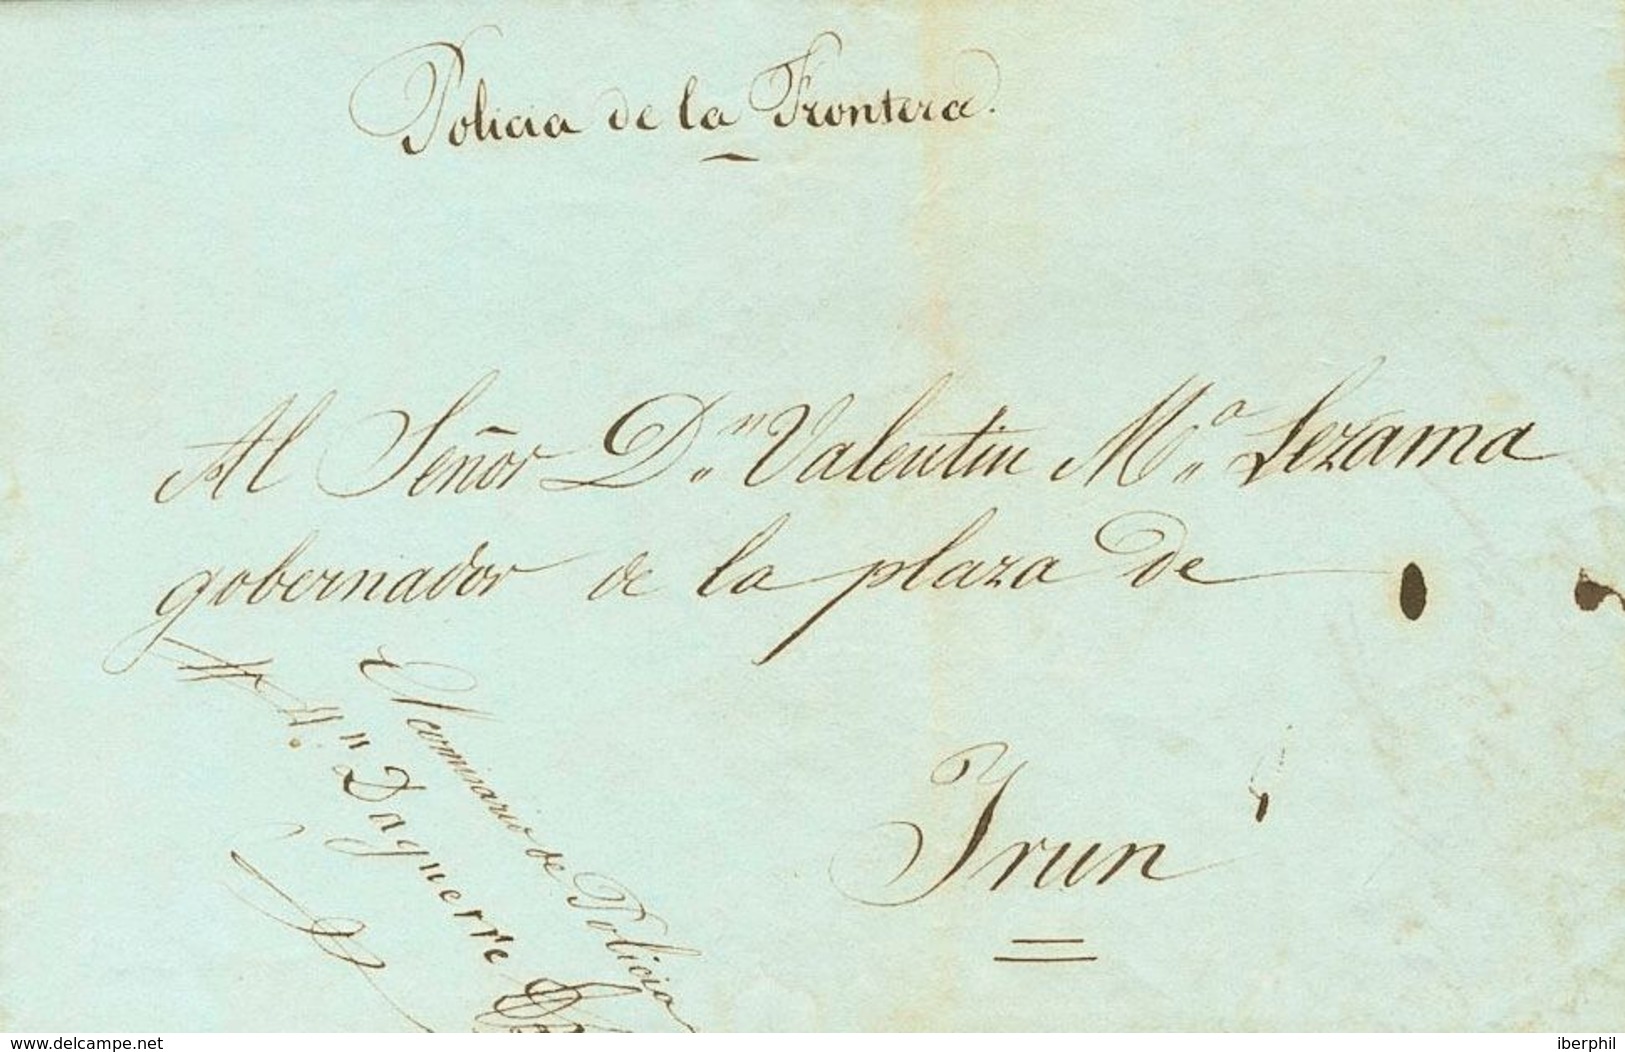 Policia de la Frontera.
Al Señor D.ⁿ Valentin M.ª Lezama
gobernador de la plaza de
Irun
El comisario de Policia
Daguerre
www.delcampe.net
iberphil